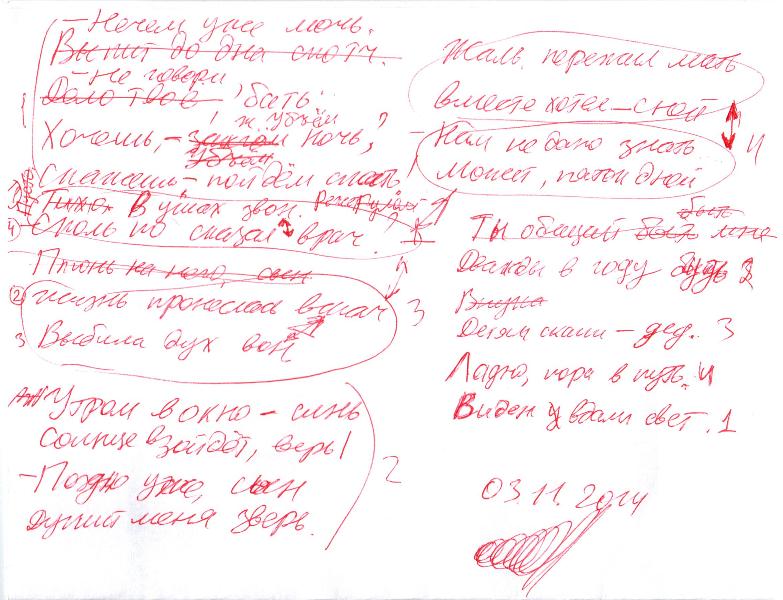 – Нечем уже мочь.
Выпит до дна скотч.
– Не говори
Дело твоё 'бать'
ж. убъём
Хочешь, – ночь,
Скажешь – пойдём спать
Пусть
Тихо. В ушах звон.
4) Столь но сказал врач
Плюнь на кого, сын
2 Жизнь пронеслась вскач 3
3 Выбила дух вон
Утром в окно – синь
Солнце взойдёт, верь!
– Поздно уже, сын 2
Душит меня зверь.
Жаль, пережил мать
Вместе хотел – с ней
– Нам не дано знать 4
Может, пяток дней
быть
Ты обещай мне
Дважды в году будь 2
Внука
Детям скажи – дед.. 3
Ладно, пора в путь. 4
Виден вдали свет. 1
03.11.2014